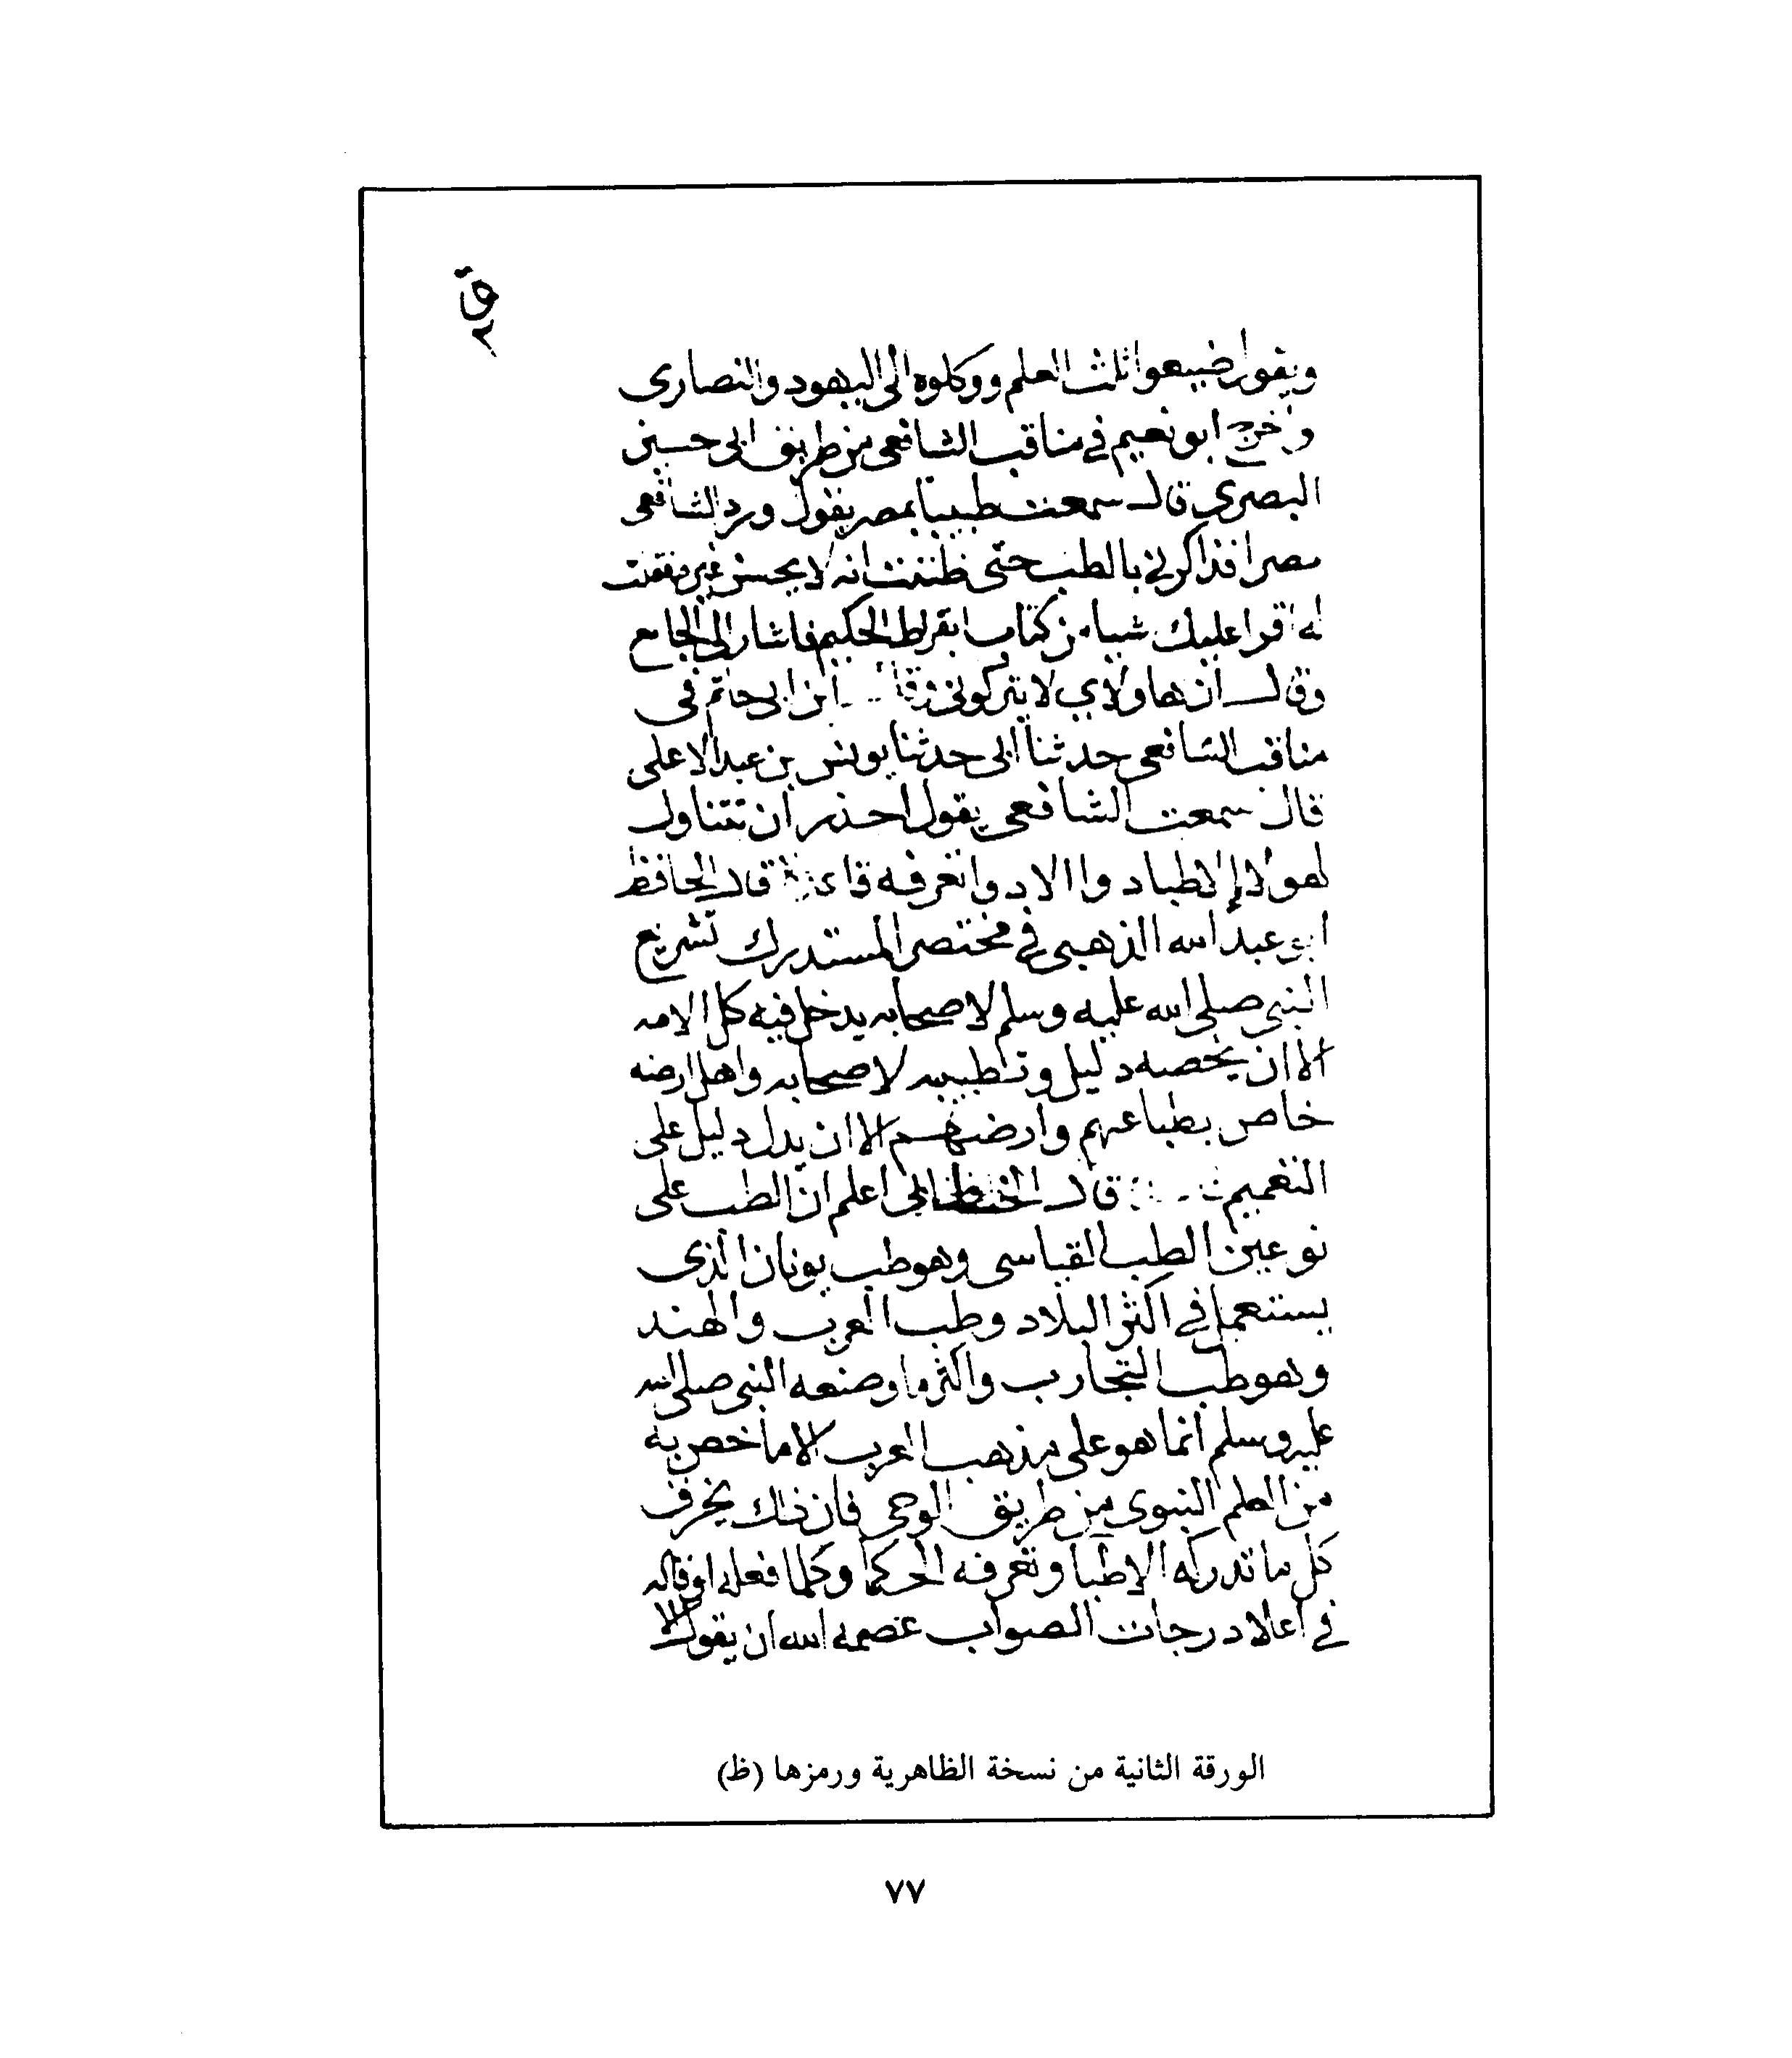 ق
٢
ويقول ضيعوا ثلث العلم ووكلوه الى اليهود والنصارى
واخرج ابو نعيم في مناقب الشافعي من طريق ابي حسين
البصري قال سمعت طبيبا بمصر يقول ورد الشافعي
مصرا فذاكرني بالطب حتى ظننت انه لا يحسن غيره فقلت
له اقرا عليك شيا من كتاب ابقراط الحكيم فاشار الى الجامع
وقال ان هاولاي لا يتركوني وقال ابن ابي حاتم في
مناقب الشافعي حدثنا ابي حدثنا يونس بن عبد الاعلى
قال سمعت الشافعي يقول احذر ان تتناول
لهولا الاطباء دوا الا دوا تعرفه قال الحافظ
ابو عبد الله الذهبي في مختصر المستدرك تشريع
النبي صلى الله عليه وسلم لاصحابه يدخل فيه كل الامه
الا ان يخصه دليل وتطبيبه لاصحابه واهل ارضه
خاص بطباعهم وارضهم الا ان يدل دليل على
التعميم قال الخطابي اعلم ان الطب على
نوعين الطب القياسي وهو طب يونان الذي
يستعمل في اكثر البلاد وطب العرب والهند
وهو طب التجارب واكثر ما وصنعه النبي صلى الله
عليه وسلم انما هو على مذهب العرب الا ما خص به
من العلم النبوي من طريق الوحي فان ذلك يخرق
كل ما تدركه الاطبا وتعرفه الحكما وكلما فعله او قاله
في اعلا درجات الصواب عصمه الله ان يقول الا
الورقة الثانية من نسخة الظاهرية ورمزها (ظ)
٧٧